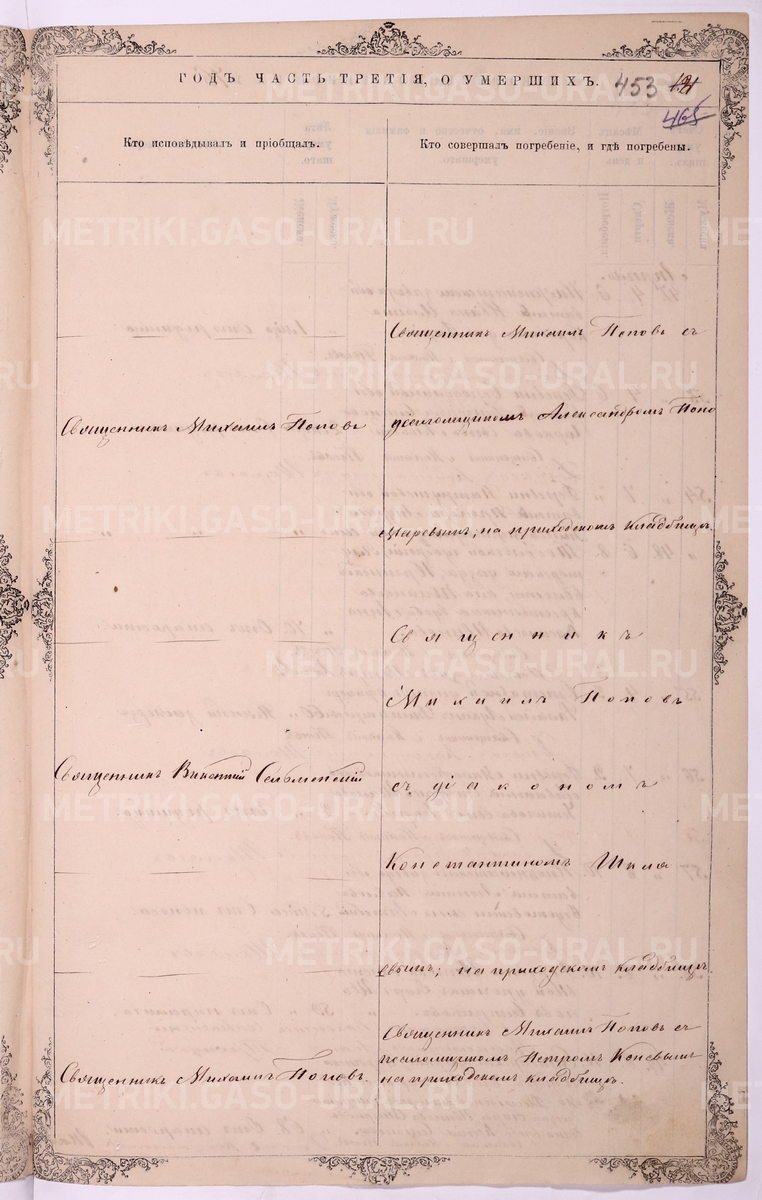 ГОДЪ ЧАСТЬ ТРЕТІЯ, О УМЕРШИХЪ.
453
465
Кто исповѣдывалъ и пріобщалъ.
Кто совершалъ погребеніе, и гдѣ погребены.
METRIKI.GASO-URAL.RU
Священникъ Михаилъ Поповъ съ
Священникъ Михаилъ Поповъ
псаломщикомъ Александромъ Поно
маревымъ; на приходскомъ кладбищѣ.
Священникъ
Михаилъ Поповъ
Священникъ
съ діакономъ
Константиномъ Шкля
евымъ; на приходскомъ кладбищѣ.
Священникъ Михаилъ Поповъ съ
псаломщикомъ Петромъ Коневымъ
Священникъ Михаилъ Поповъ.
на приходскомъ кладбищѣ.